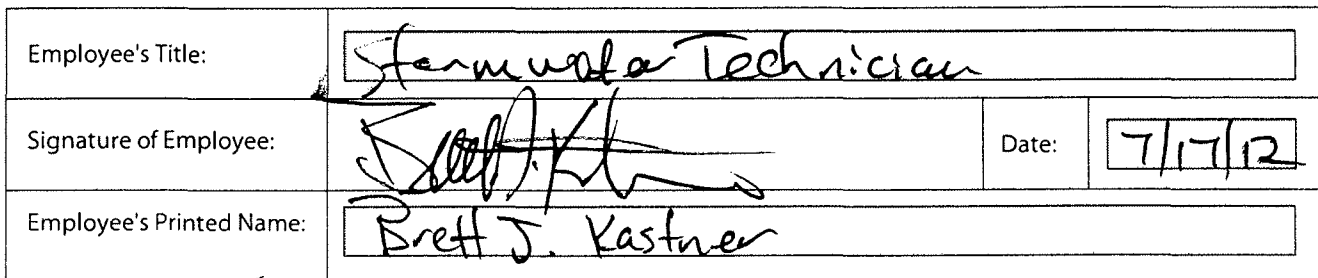 Employee's Title: Stormwater Technician
Signature of Employee: Brett J. K Date: 7/17/12
Employee's Printed Name: Brett J. Kastner